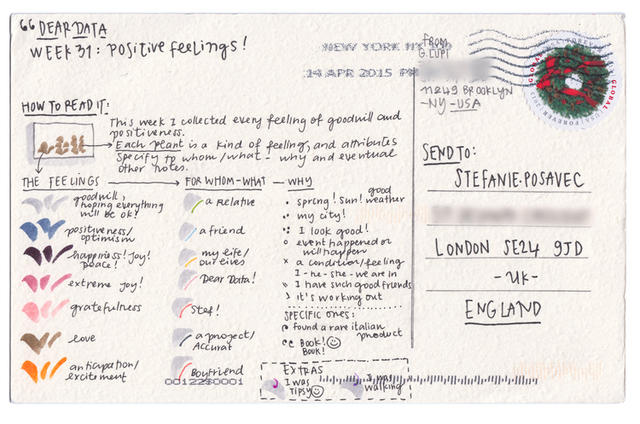 “ DEAR DATA
WEEK 31: positive feelings!
NEW YORK NY
14 APR 2015 PM
FROM
G. LUPI
11249 BROOKLYN
-NY-USA
GLOBAL
FOREVER
HOW TO READ IT:
This week I collected every feeling of goodwill and
positiveness.
Each plant is a kind of feeling, and attributes
specify to whom/what - why and eventual
other notes.
THE FEELINGS
goodwill,
hoping everything
will be ok!
positiveness/
optimism
happiness! joy!
peace!
extreme joy!
gratefulness
love
anticipation/
excitement
FOR WHOM-WHAT
a relative
a friend
my life/
our lives
Dear Data!
Stef!
a project/
Accurat
Boyfriend
WHY
spring! sun! good weather
my city!
I look good!
event happened or
will happen
a condition/feeling
I-he-she-we are in
I have such good friends
it's working out
SPECIFIC ONES:
found a rare italian
product
Book!
Book!
EXTRAS
I was
tipsy
I was
walking
SEND TO:
STEFANIE POSAVEC
LONDON SE24 9JD
-UK-
ENGLAND